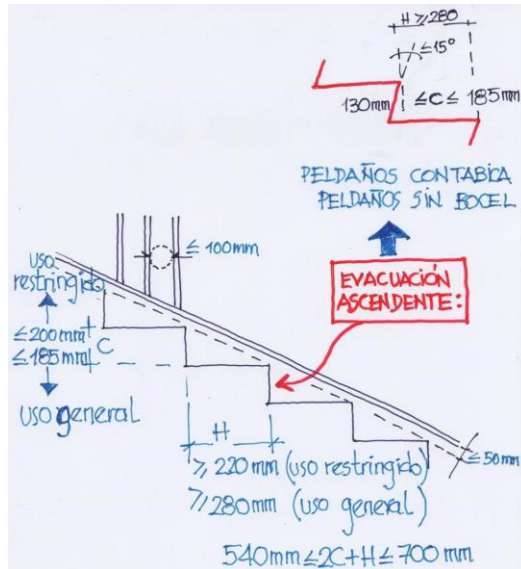 H ≥ 280
≤15°
130mm ≤C≤ 185mm
PELDAÑOS CONTABICA
PELDAÑOS SIN BOCEL
EVACUACIÓN
ASCENDENTE:
≤ 100mm
uso
restringido
≤200mm
≤185mm
C
uso general
H
≥ 220 mm (uso restringido)
≥ 280mm (uso general)
≤50mm
540mm ≤2C+H ≤ 700 mm